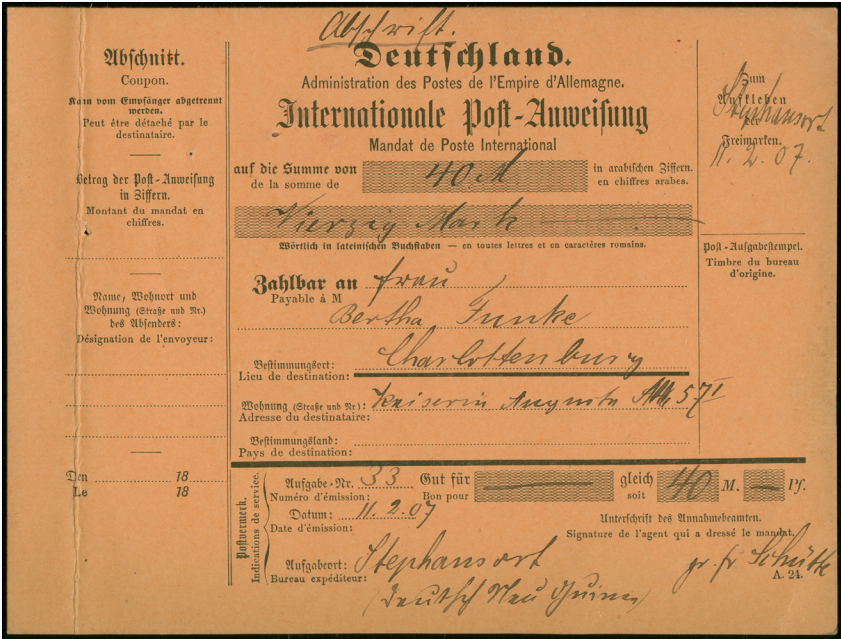 Abschrift.
Abschnitt.
Coupon.
Kann vom Empfänger abgetrennt
werden.
Peut être détaché par le
destinataire.
Betrag der Post-Anweisung
in Ziffern.
Montant du mandat en
chiffres.
Name, Wohnort und
Wohnung (Straße und Nr.)
des Absenders:
Désignation de l'envoyeur:
Den 18
Le 18
Deutschland.
Administration des Postes de l'Empire d'Allemagne.
Internationale Post-Anweisung
Mandat de Poste International
auf die Summe von 40 M in arabischen Ziffern.
de la somme de en chiffres arabes.
Vierzig Mark
Wörtlich in lateinischen Buchstaben — en toutes lettres et en caractères romains.
Zahlbar an Frau
Payable à M
Bertha Funke
Bestimmungsort: Charlottenburg
Lieu de destination:
Wohnung (Straße und Nr.): Kaiserin Augusta Allee 57 I
Adresse du destinataire:
Bestimmungsland:
Pays de destination:
Zum
Aufkleben
der
Freimarken.
Stephansort
11. 2. 07.
Post-Aufgabestempel.
Timbre du bureau
d'origine.
Postvermerk.
Indications de service.
Aufgabe-Nr. 33 Gut für — gleich 40 M. — Pf.
Numéro d'émission: Bon pour soit
Datum: 11. 2. 07
Date d'émission:
Unterschrift des Annahmebeamten.
Signature de l'agent qui a dressé le mandat.
Aufgabeort: Stephansort gz. fr Schütt
Bureau expéditeur:
A. 24.
(Deutsch Neu Guinea)